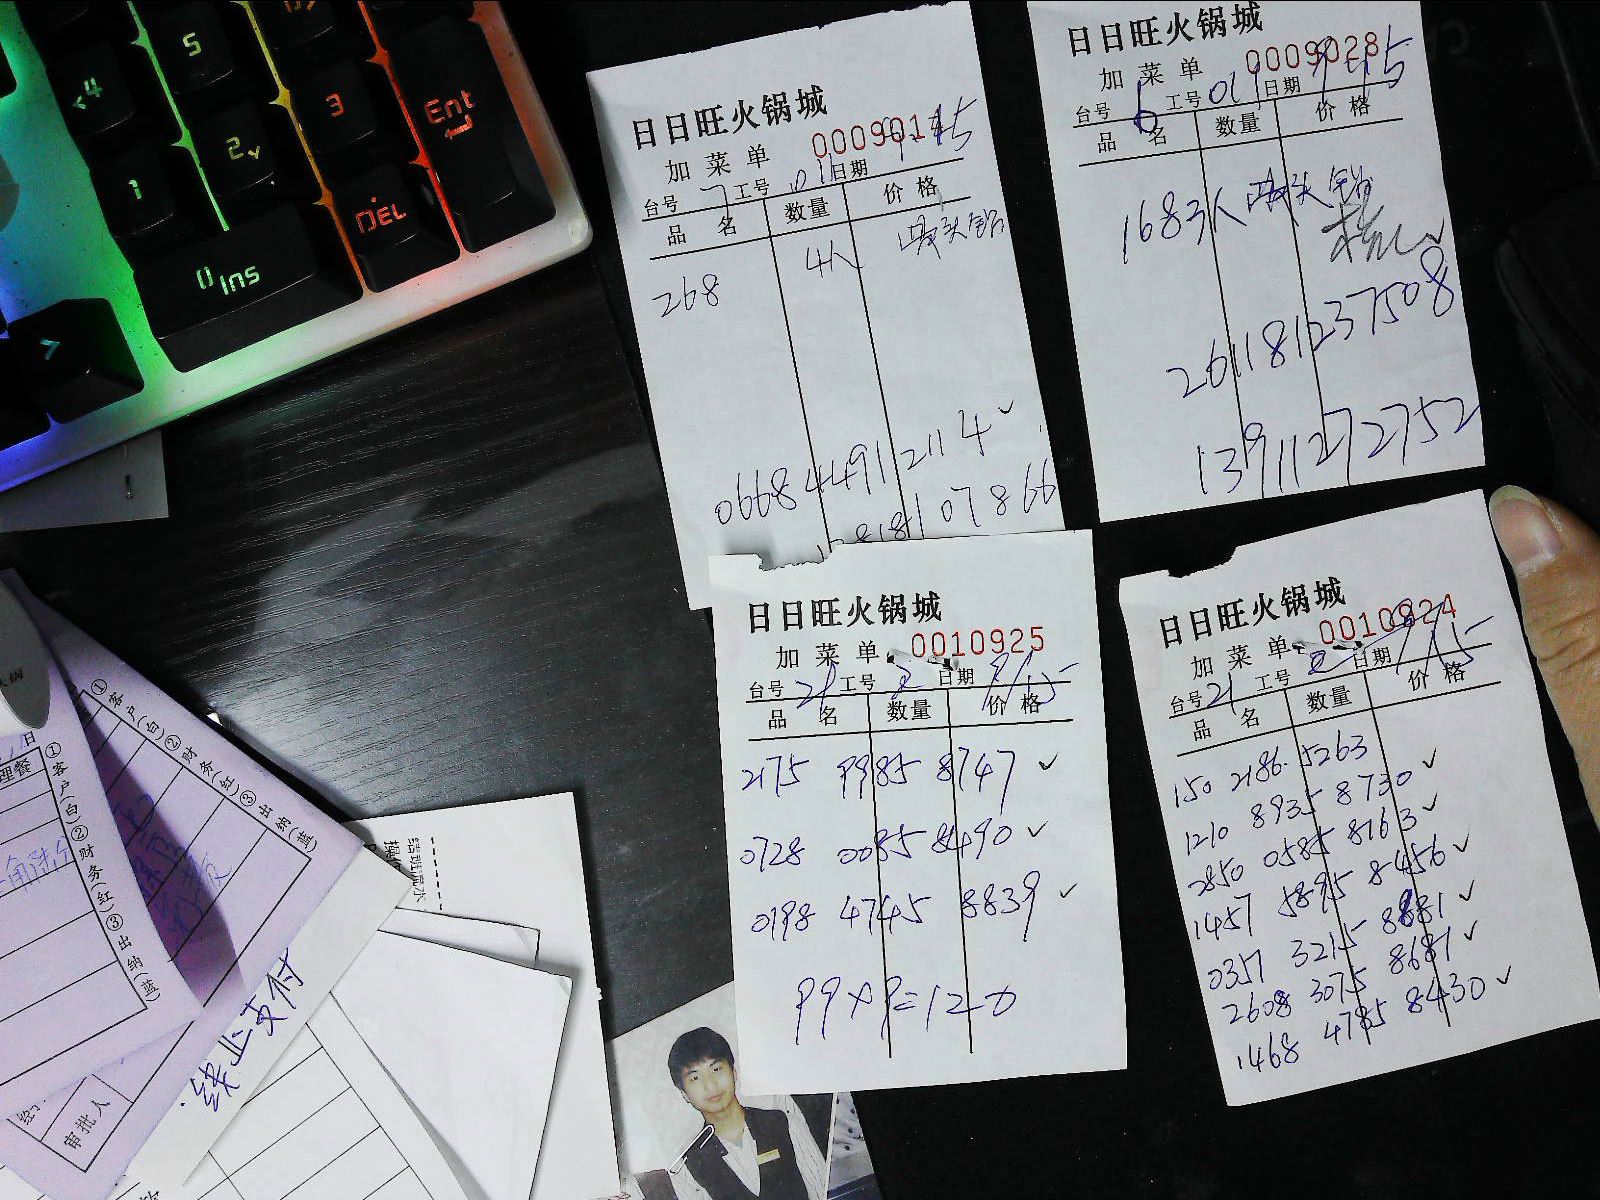 5
4
3
Ent
2
1
DEL
0 Ins
日日旺火锅城
加菜单
台号 7 工号 011 日期
品名 数量 价格
268 4人
066844912114 ✓
日日旺火锅城
0009028
加菜单
台号 6 工号 011 日期 9-15
品名 数量 价格
168 3人
261181237508
13911272752
日日旺火锅城
0010925
加菜单
台号 21 工号 2 日期 9/15
品名 数量 价格
2175 9985 8747 ✓
0728 0085 8490 ✓
0198 4745 8839 ✓
99×9=12-0
日日旺火锅城
0010924
加菜单
台号 21 工号 2 日期 9/15
品名 数量 价格
150 2186 5263
1210 8935 8730 ✓
2850 0585 8163 ✓
1457 5895 8456 ✓
0357 3215 8881 ✓
2608 3075 8681 ✓
1468 4785 8430 ✓
①客户(白)②财务(红)③出纳(蓝)
①客户(白)②财务(红)③出纳(蓝)
终止支付
审批人